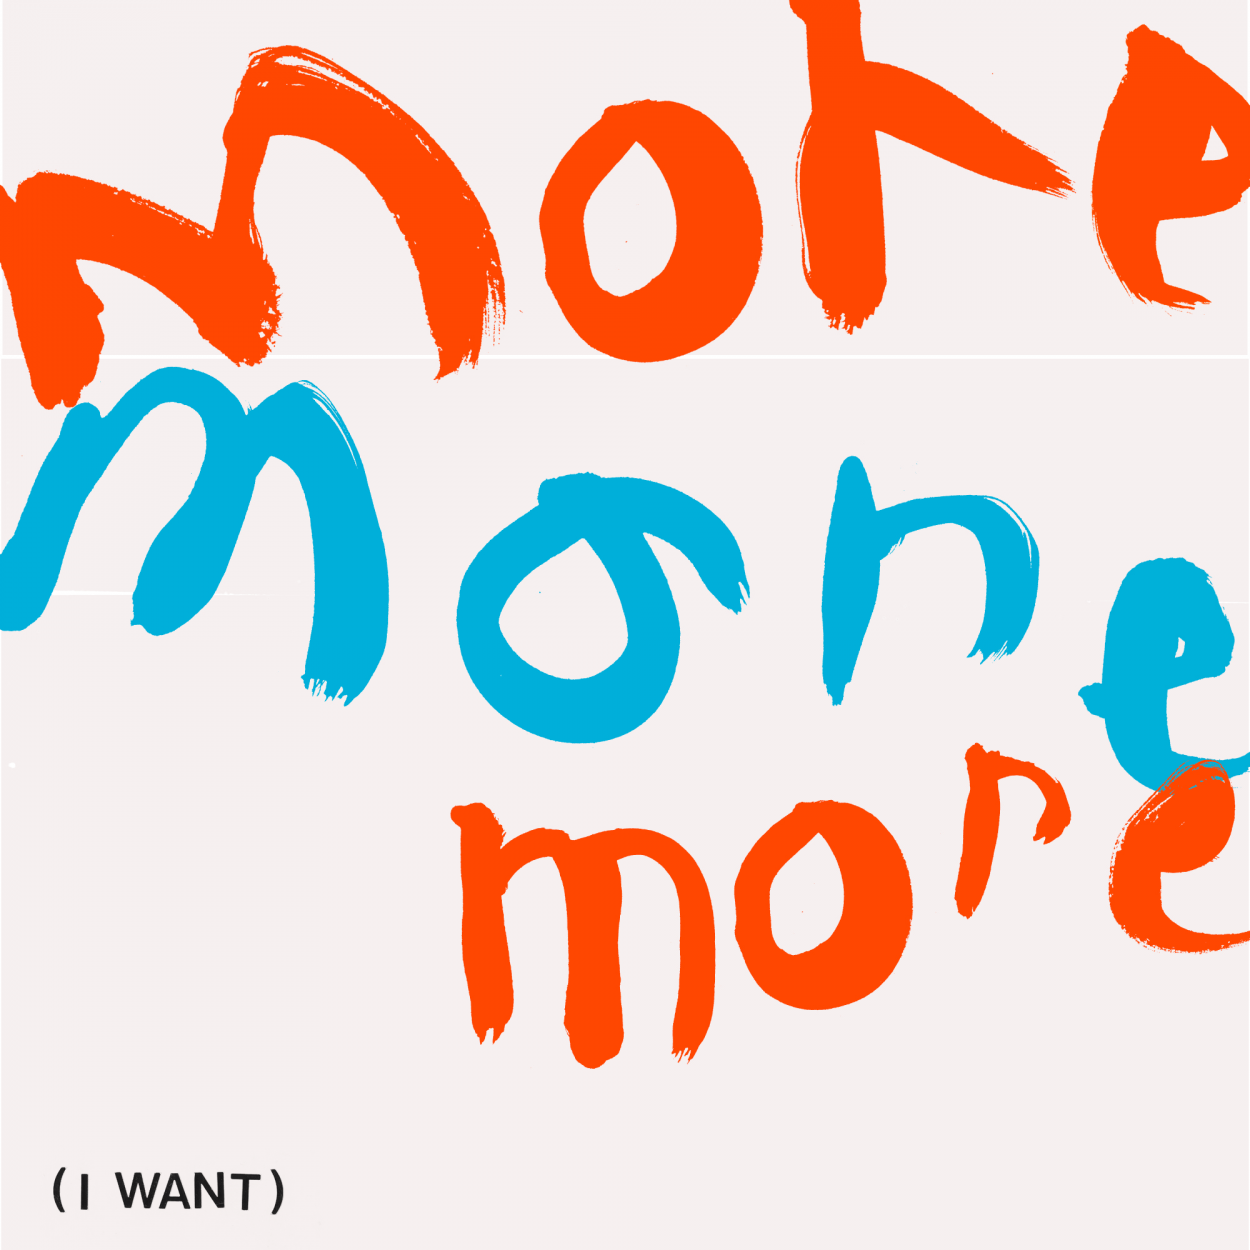 more
more
more
(I WANT)